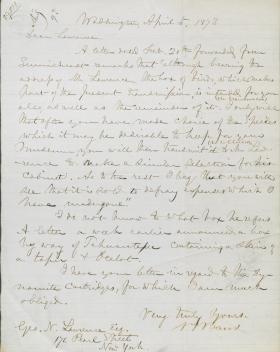 Washington, April 5, 1873
Dear Lawrence
A letter dated Feb. 24th forwarded from
remarks that "although bearing the
address of Mr Lawrence the box of birds, which makes
part of the present transmission, is intended for you
also, as well as the remainder of it. I only wish
that after you have made choice of the species
which it may be desirable to keep for your
Museum, you will then transmit to Mr Law-
rence to make a similar selection for his
Cabinet. As to the rest I beg that you will
see that it is sold to defray expenses which I
have undergone"
I do not know to what box he refers
A letter a week earlier announced a box
by way of Tehuantepec containing a skins of
a tapir & Ocelot.
I have your letter in regard to the Dy-
namite Cartridges, for which I am much
obliged.
Very truly yours
Geo. N. Lawrence Esq.
172 Pearl Street
New York.